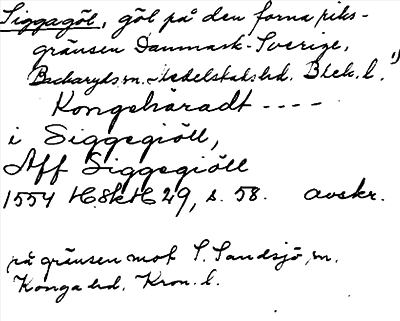 Siggagöl, göl på den forna riks-
gränsen Danmark-Sverige,
Backaryds sn. Medelstads hd. Blek. l. 1)
Kongshäradt ----
i Siggegiöll,
Aff Siggegiöll
1554 H.Skt 29, s. 58. avskr.
på gränsen mot S. Sandsjö sn.
Konga hd. Kron. l.